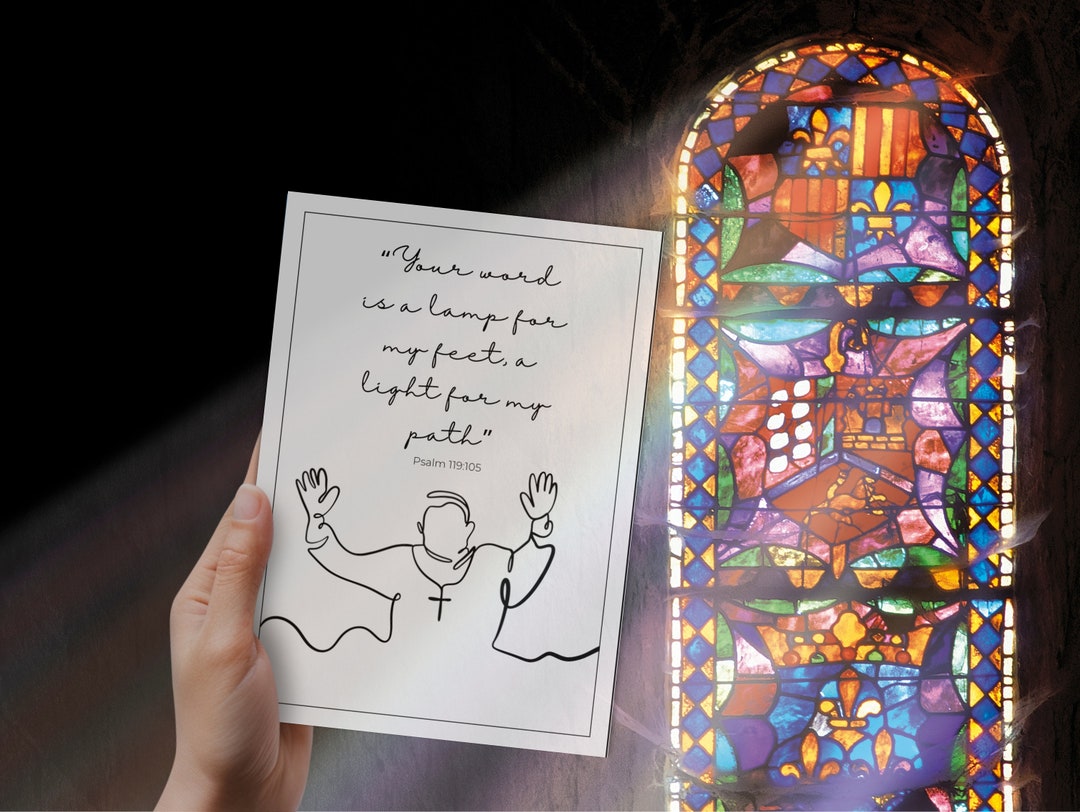 "Your word
is a lamp for
my feet, a
light for my
path"
Psalm 119:105